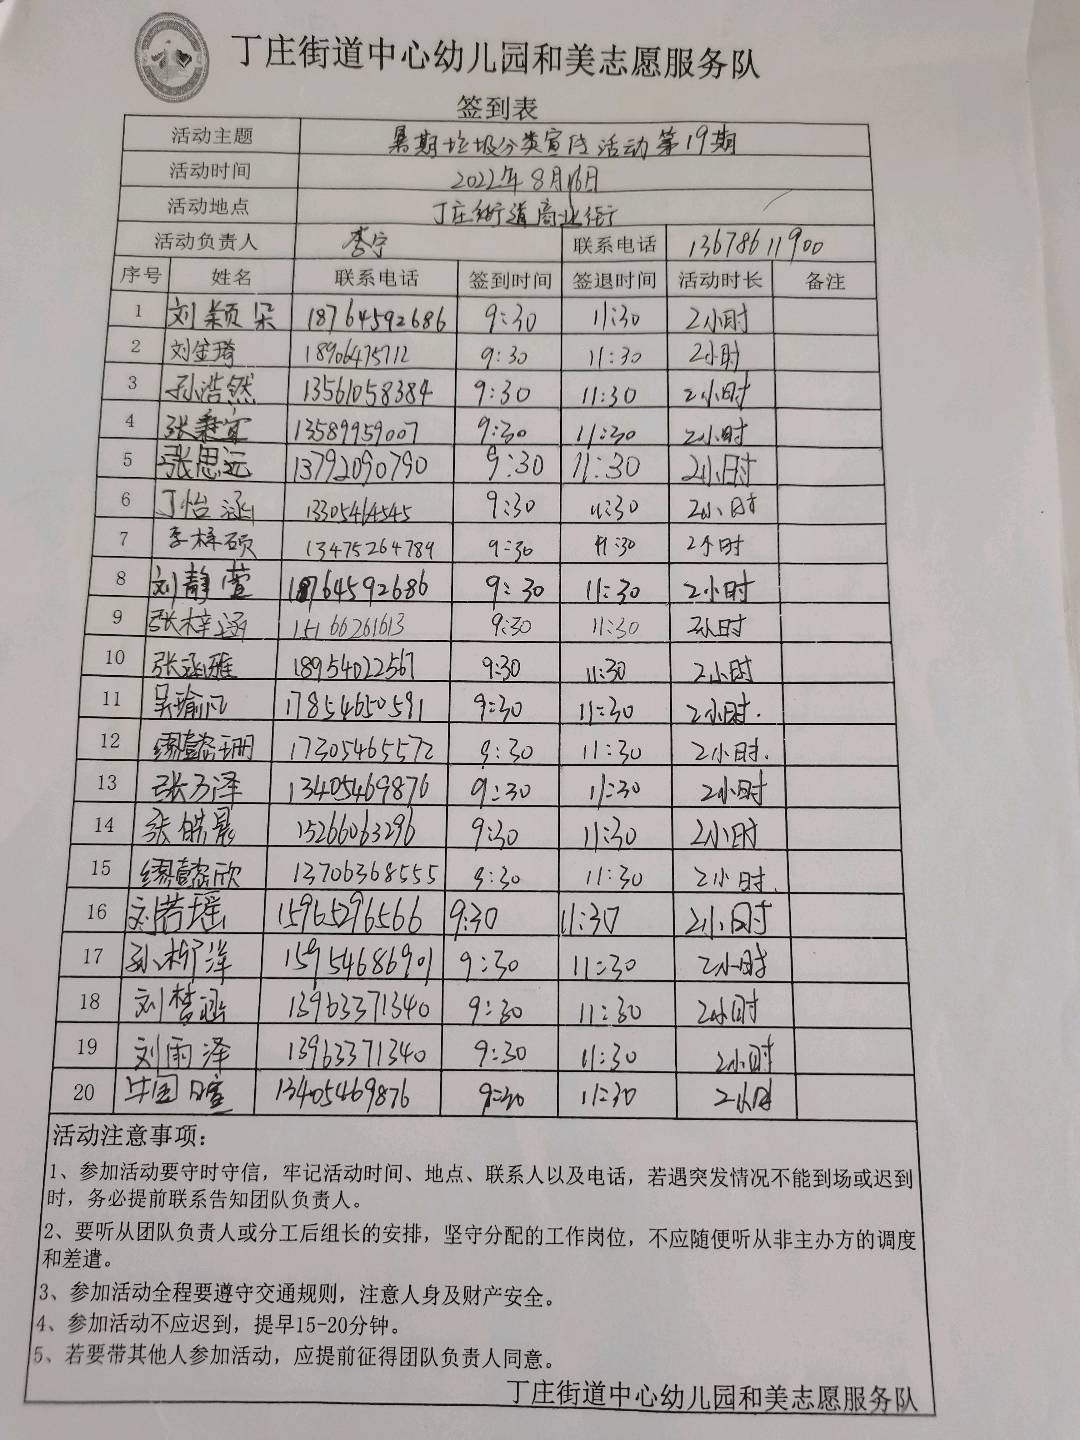 丁庄街道中心幼儿园和美志愿服务队
签到表
活动主题 暑期垃圾分类宣传活动第19期
活动时间 2022年8月16日
活动地点 丁庄街道商业街
活动负责人 李宁 联系电话 13678611900
序号 姓名 联系电话 签到时间 签退时间 活动时长 备注
1 刘颖朵 18764592686 9:30 11:30 2小时
2 刘金琦 18906475712 9:30 11:30 2小时
3 孙浩然 13561058384 9:30 11:30 2小时
4 张秉宜 13589959007 9:30 11:30 2小时
5 张思远 13792090790 9:30 11:30 2小时
6 丁怡涵 13305464545 9:30 11:30 2小时
7 李梓硕 13475264789 9:30 11:30 2小时
8 刘静萱 18764592686 9:30 11:30 2小时
9 张梓涵 15166261613 9:30 11:30 2小时
10 张涵雅 18954022567 9:30 11:30 2小时
11 吴瑜凡 17854650591 9:30 11:30 2小时.
12 缪懿珊 17305465572 9:30 11:30 2小时.
13 张万泽 13405469876 9:30 11:30 2小时
14 张皓晨 15266063296 9:30 11:30 2小时
15 缪懿欣 13706368555 9:30 11:30 2小时.
16 刘若瑶 15965296566 9:30 11:30 2小时
17 孙析泽 15954686901 9:30 11:30 2小时
18 刘梦涵 13963371340 9:30 11:30 2小时
19 刘雨泽 13963371340 9:30 11:30 2小时
20 牛国暄 13405469876 9:30 11:30 2小时
活动注意事项：
1、参加活动要守时守信，牢记活动时间、地点、联系人以及电话，若遇突发情况不能到场或迟到
时，务必提前联系告知团队负责人。
2、要听从团队负责人或分工后组长的安排，坚守分配的工作岗位，不应随便听从非主办方的调度
和差遣。
3、参加活动全程要遵守交通规则，注意人身及财产安全。
4、参加活动不应迟到，提早15-20分钟。
5、若要带其他人参加活动，应提前征得团队负责人同意。
丁庄街道中心幼儿园和美志愿服务队